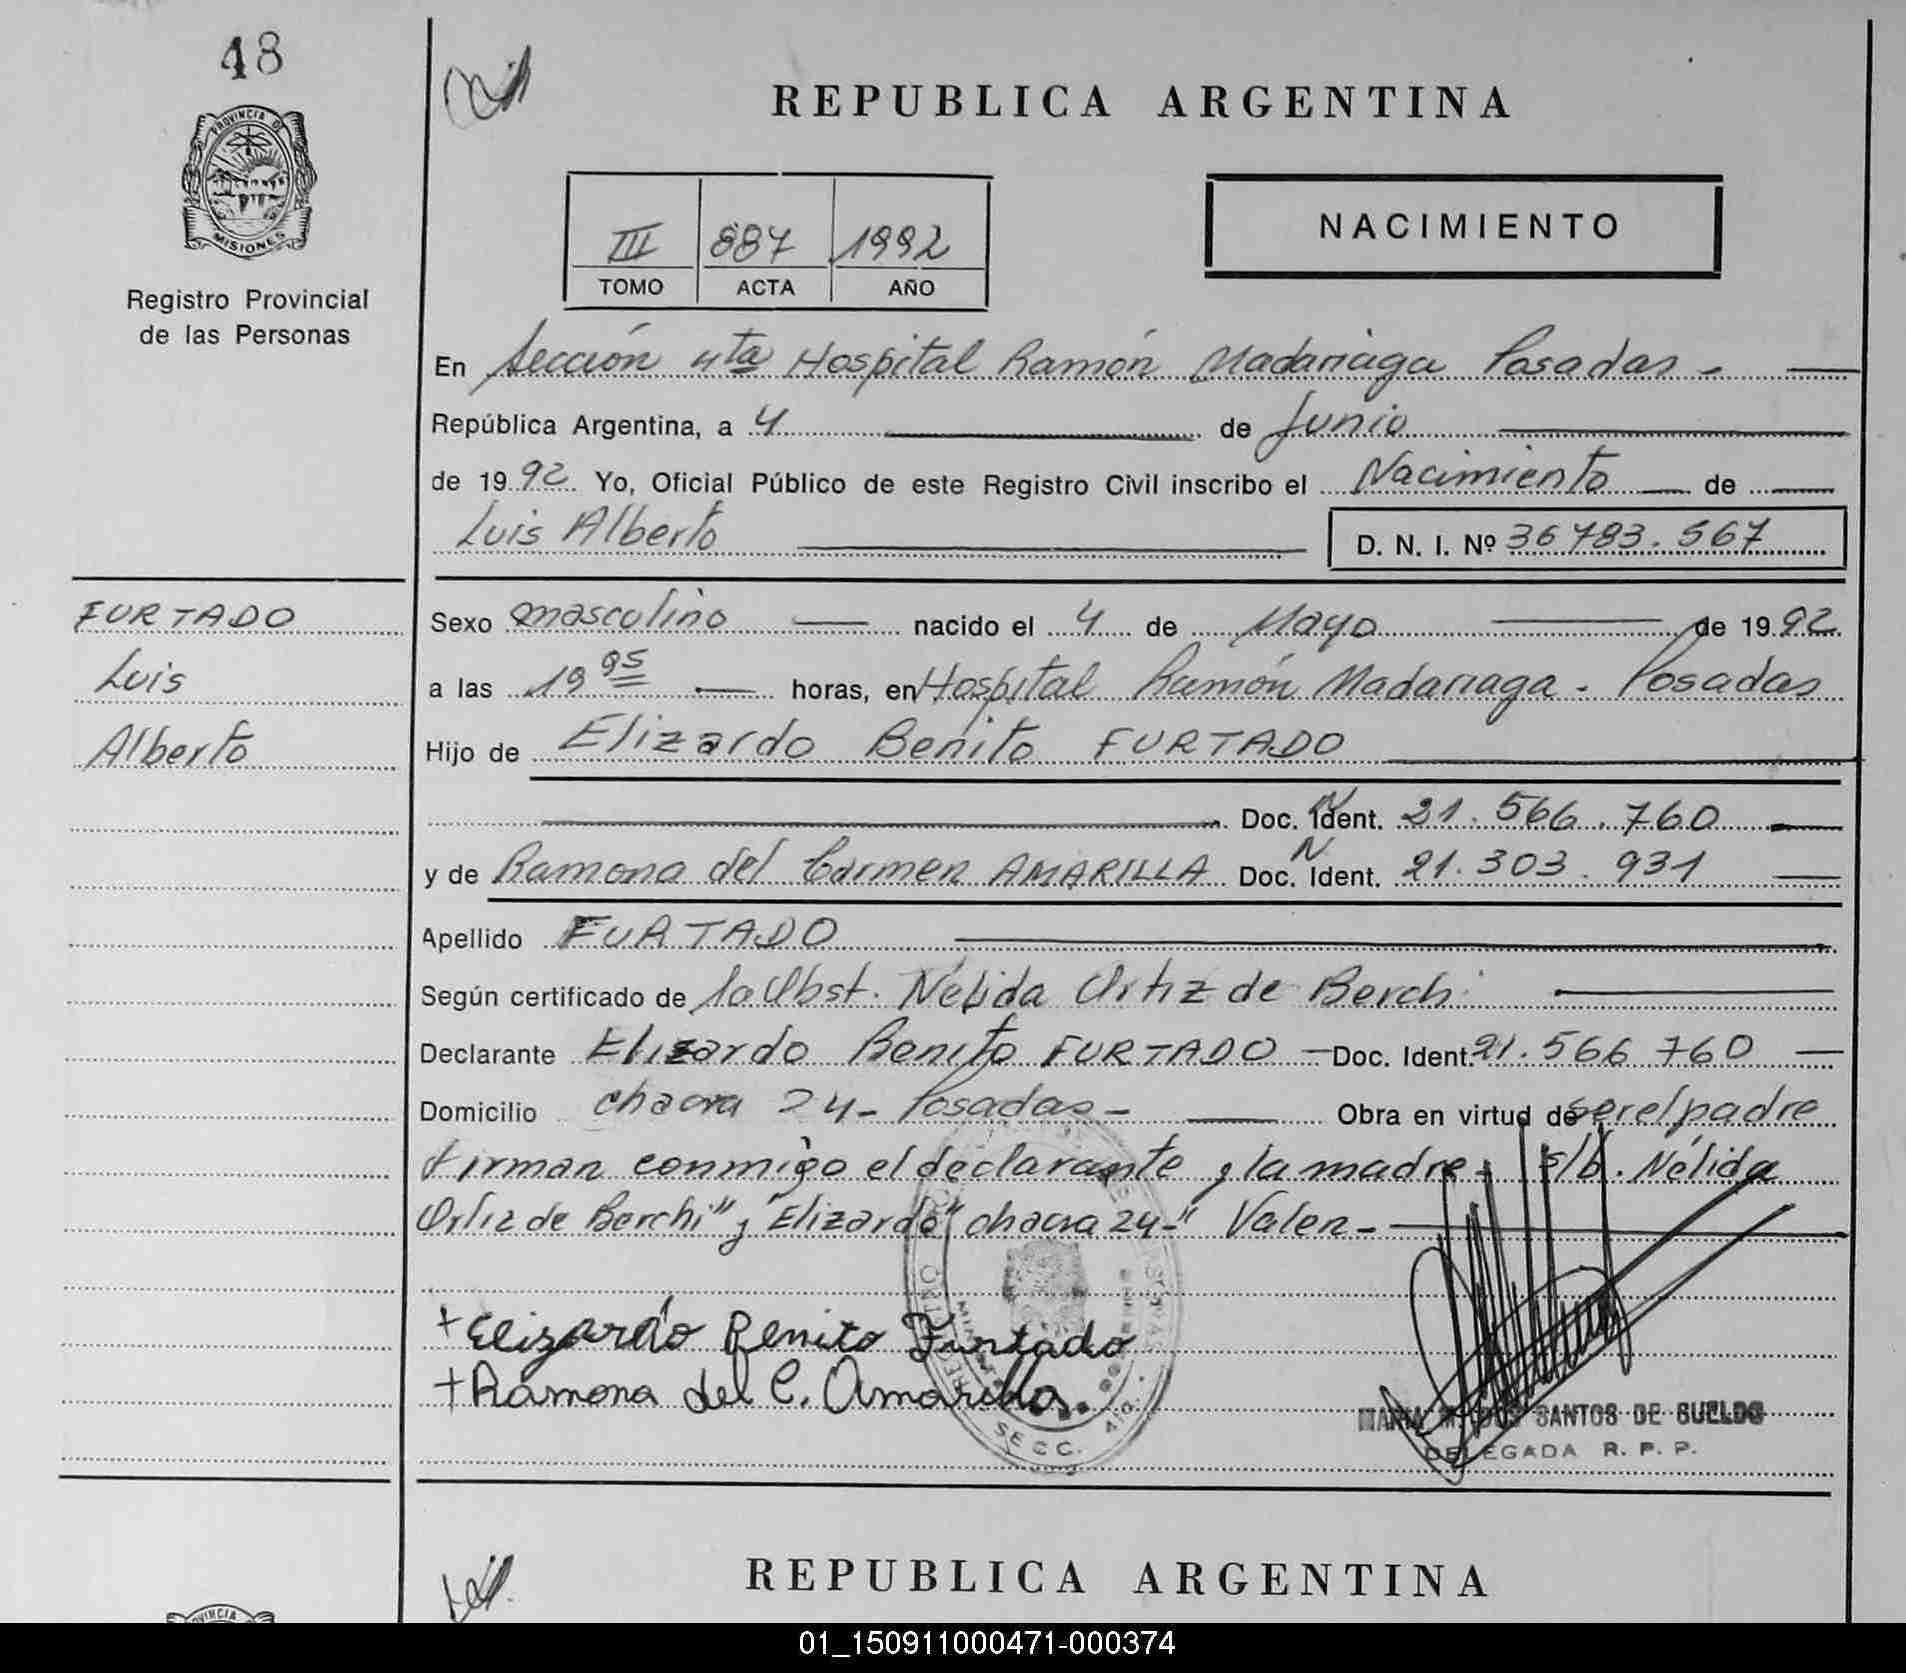 48
REPUBLICA ARGENTINA
PROVINCIA DE
MISIONES
Registro Provincial
de las Personas
III 887 1992
TOMO ACTA AÑO
NACIMIENTO
En Sección 4ta Hospital Ramón Madariaga Posadas -
República Argentina, a 4 de Junio
de 1992 Yo, Oficial Público de este Registro Civil inscribo el Nacimiento de
Luis Alberto D. N. I. Nº 36783.567
FURTADO
Luis
Alberto
Sexo masculino nacido el 4 de Mayo de 1992
a las 19 horas, en Hospital Ramón Madariaga - Posadas
Hijo de Elizardo Benito FURTADO
Doc. N Ident. 21.566.760
y de Ramona del Carmen AMARILLA Doc. N Ident. 21.303.931
Apellido FURTADO
Según certificado de la Obst. Nélida Ortiz de Berchi
Declarante Elizardo Benito FURTADO Doc. Ident. 21.566 760
Domicilio chacra 24- Posadas- Obra en virtud de ser el padre
firman conmigo el declarante y la madre- s/b. Nélida
Ortiz de Berchi" y "Elizardo" chacra 24-" Valen-
+ Elizardo Benito Furtado
+ Ramona del C. Amarilla.
SECC. 4ta.
MARIA M. DOS SANTOS DE SUELDO
DELEGADA R. P. P.
REPUBLICA ARGENTINA
01_150911000471-000374